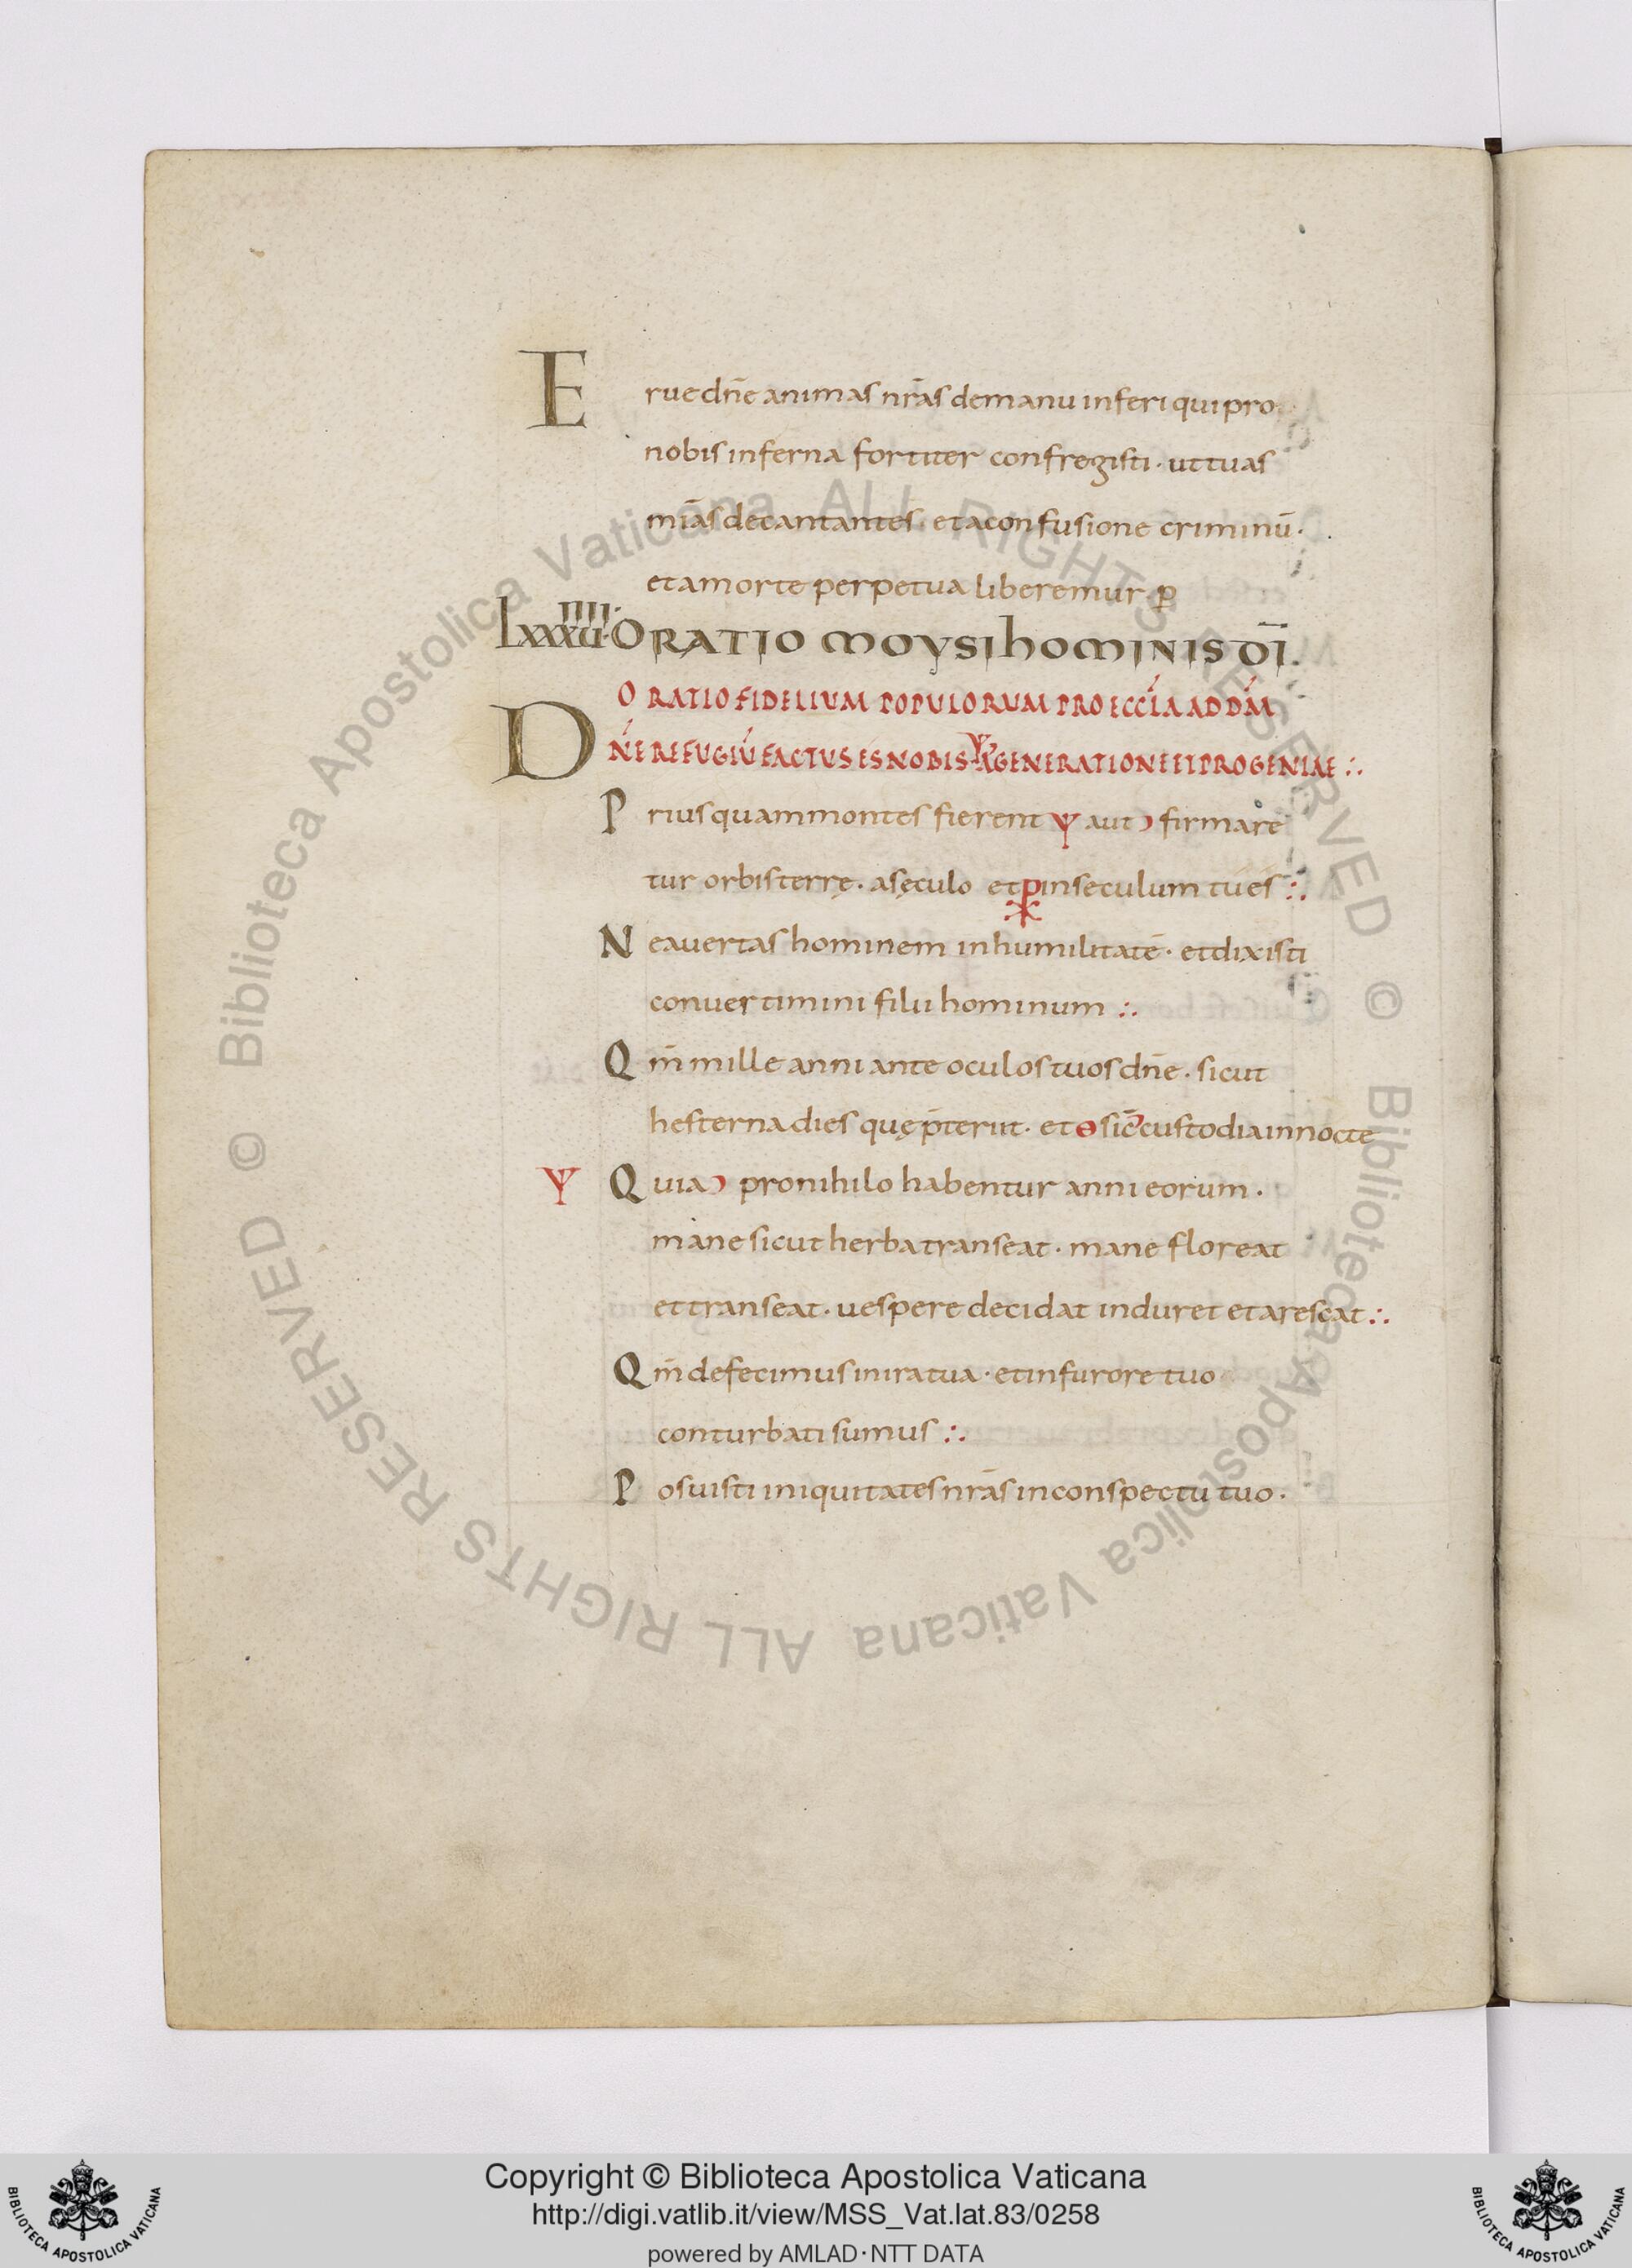 Erue dn̄e animas nr̄as demanu inferi qui pro
nobis inferna fortiter confregisti · ut tuas
mīas decantantes · et a confusione criminū ·
et a morte perpetua liberemur · p̱
LXXXUIIII · ORATIO MOYSI HOMINIS DĪ .
ORATIO FIDELIUM POPULORUM PRO ECCL̄A AD DM̄
DN̄E REFUGIŪ FACTUS ES NOBIS GENERATIONE ET PROGENIAE ∴
Prius quam montes fierent aut firmare
tur orbis terrę . a sęculo et in seculum tu es ∴
Ne auertas hominem in humilitatē · et dixisti
conuertimini filii hominum ∴
Qm̄ mille anni ante oculos tuos dn̄e . sicut
hesterna dies quę p̄teriit · et sic custodia in nocte
Quia pro nihilo habentur anni eorum .
mane sicut herba transeat · mane floreat
et transeat · uespere decidat induret et arescat ∴
Qm̄ defecimus in ira tua · et in furore tuo
conturbati sumus ∴
Posuisti iniquitates nr̄as in conspectu tuo ·
© Biblioteca Apostolica Vaticana ALL RIGHTS RESERVED
© Biblioteca Apostolica Vaticana ALL RIGHTS RESERVED
Copyright © Biblioteca Apostolica Vaticana
http://digi.vatlib.it/view/MSS_Vat.lat.83/0258
powered by AMLAD·NTT DATA
BIBLIOTECA APOSTOLICA VATICANA
BIBLIOTECA APOSTOLICA VATICANA